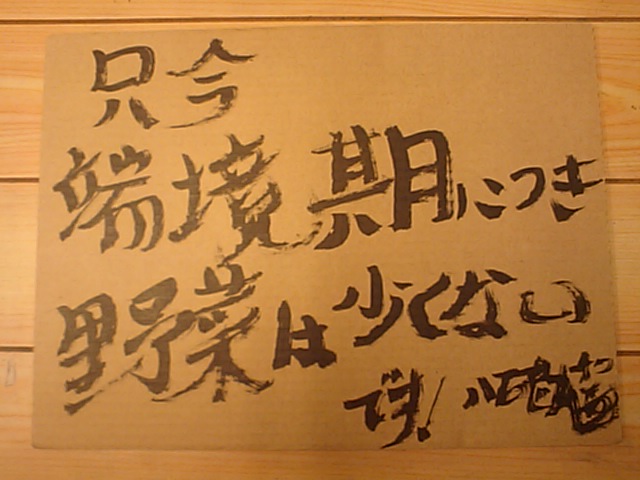 只今
端境期につき
野菜は少くない
です!